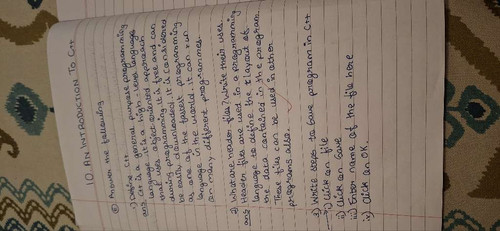 10. AN INTRODUCTION TO C++
Answer the following
1) Define C++
ans. C++ is a general purpose programming
language. It is a high-level language
that uses object oriented approach
during programming. It is free and can
be easily downloaded. It is considered
as one of the fastest programming
language in the world. It can run
on many different programmes.
2) What are header files? Write their uses.
ans Header files are used in a programming
language to define the layout of
the data contained in the program.
These files can be used in other
programs also.
3) Write steps to save program in C++
i) Click on file
ii) Click on Save
iii) Enter name of the file here
iv) Click on OK.